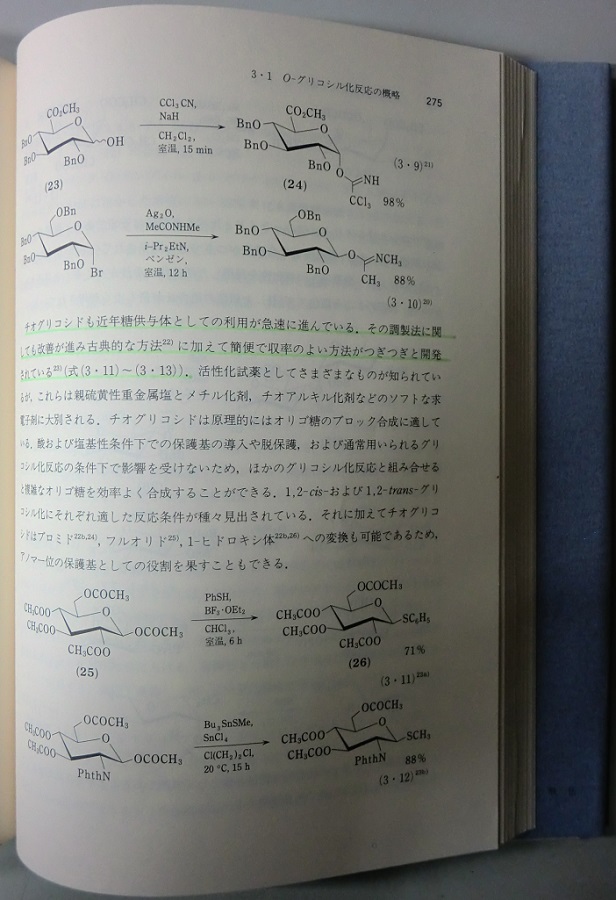 3・1 O-グリコシル化反応の概略 275
CO₂CH₃
O
BnO
BnO
BnO
OH
(23)
CCl₃CN,
NaH
CH₂Cl₂,
室温, 15 min
CO₂CH₃
O
BnO
BnO
BnO
O
NH
CCl₃ 98%
(24)
(3・9)²¹⁾
OBn
O
BnO
BnO
BnO
Br
Ag₂O,
MeCONHMe
i-Pr₂EtN,
ベンゼン,
室温, 12 h
OBn
O
BnO
BnO
BnO
O
NCH₃
CH₃ 88%
(3・10)²⁰⁾
チオグリコシドも近年糖供与体としての利用が急速に進んでいる．その調製法に関
しても改善が進み古典的な方法²²⁾に加えて簡便で収率のよい方法がつぎつぎと開発
されている²³⁾(式(3・11)～(3・13))．活性化試薬としてさまざまなものが知られてい
るが，これらは親硫黄性重金属塩とメチル化剤，チオアルキル化剤などのソフトな求
電子剤に大別される．チオグリコシドは原理的にはオリゴ糖のブロック合成に適して
いる．酸および塩基性条件下での保護基の導入や脱保護，および通常用いられるグリ
コシル化反応の条件下で影響を受けないため，ほかのグリコシル化反応と組み合せる
と複雑なオリゴ糖を効率よく合成することができる．1,2-cis-および1,2-trans-グリ
コシル化にそれぞれ適した反応条件が種々見出されている．それに加えてチオグリコ
シドはブロミド²²ᵇ,²⁴⁾，フルオリド²⁵⁾，1-ヒドロキシ体²²ᵇ,²⁶⁾への変換も可能であるため，
アノマー位の保護基としての役割を果すこともできる．
OCOCH₃
O
CH₃COO
CH₃COO
CH₃COO
OCOCH₃
(25)
PhSH,
BF₃・OEt₂
CHCl₃,
室温, 6 h
OCOCH₃
O
CH₃COO
CH₃COO
CH₃COO
SC₆H₅
(26)
71%
(3・11)²³ᵃ⁾
OCOCH₃
O
CH₃COO
CH₃COO
PhthN
OCOCH₃
Bu₃SnSMe,
SnCl₄
Cl(CH₂)₂Cl,
20 °C, 15 h
OCOCH₃
O
CH₃COO
CH₃COO
PhthN
SCH₃
88%
(3・12)²³ᵇ⁾